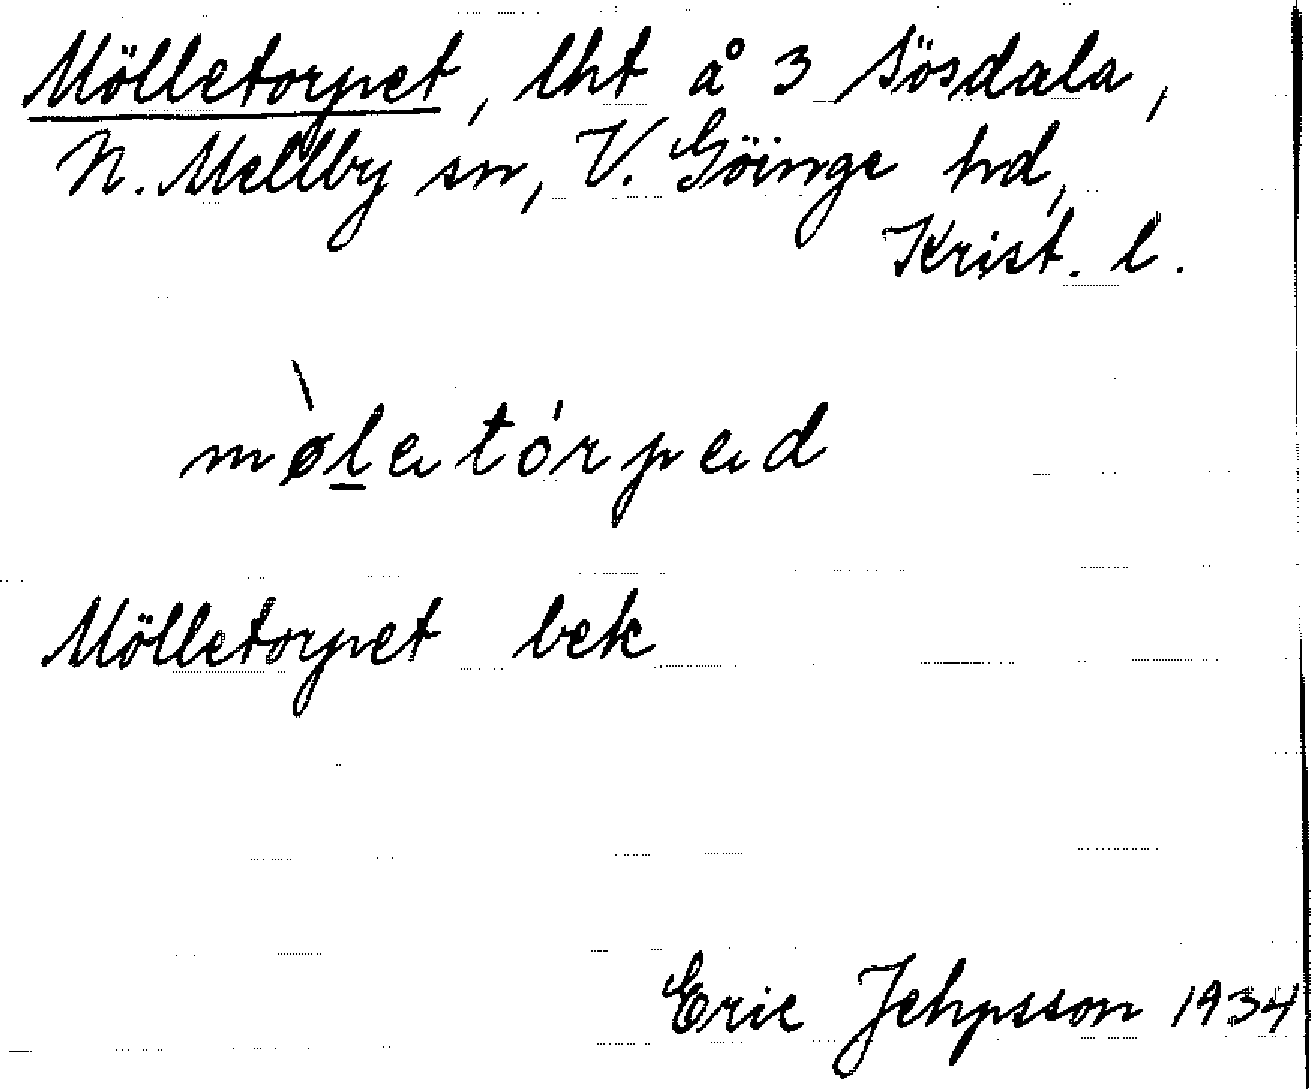 Mölletorpet, lht å 3 Sösdala,
N. Mellby sn, V. Göinge hd,
Krist. l.
mø̀letórped
Mölletorpet bek
Eric Jehpsson 1934